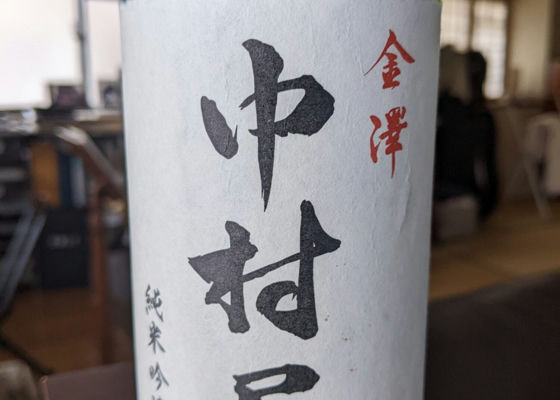 金澤
中村
純米吟